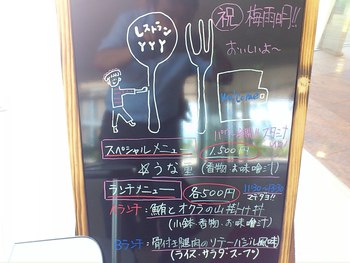 レストラン
YYY
㊗ 梅雨明!!
おいしいよ〜
Welcome
スペシャルメニュー 1,500円
☆うな重 (香物、お味噌汁)
ランチメニュー 各500円
Aランチ:鮪とオクラの山掛け丼
(小鉢、香物、お味噌汁)
Bランチ:骨付き腿肉のソテーバジル風味
(ライス・サラダ・スープ)